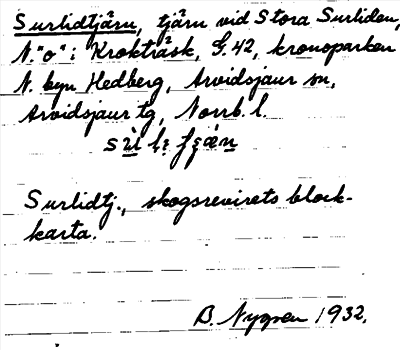 Surlidtjärn, tjärn vid Stora Surliden,
N. "o": Kroktråsk, G. 42, kronoparken
N. byn Hedberg, Arvidsjaur sn,
Arvidsjaur tg, Norrb. l.
Surlidtj., skogsrevirets block-
karta.
B. Nygren 1932.